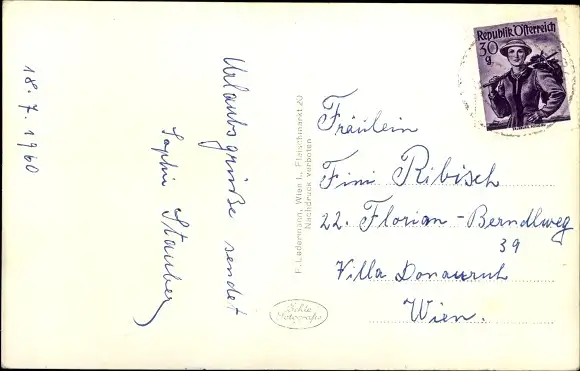 18.7.1960
Urlaubsgrüße sendet
Sophie Stauber
F. Ledermann, Wien I., Fleischmarkt 20
Nachdruck verboten
Echte
Fotografie
Republik Österreich
30
g
Fräulein
Fini Ribisch
22. Florian-Berndlweg
39
Villa Donauruh
Wien.